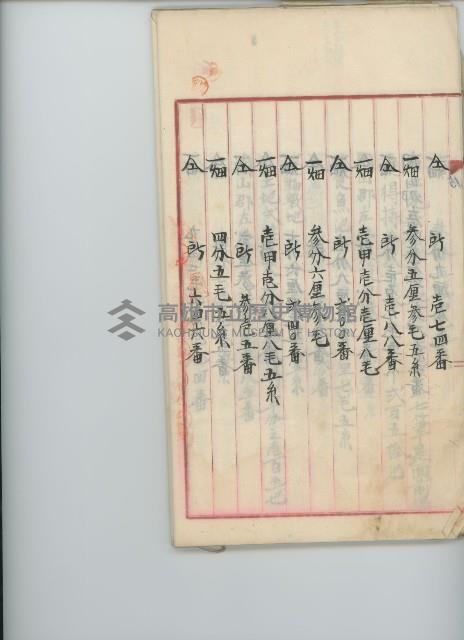 仝 所 壱七四番
一畑 参分五厘参毛五糸
仝 所 壱八八番
一畑 壱甲壱分壱厘八毛
仝 所
一畑 参分六厘参毛
仝 所 弐四〇番
一畑 壱甲壱分八厘八毛五糸
仝 所 参壱五番
一畑 四分五毛五糸
仝 所
高雄市立歷史博物館
KAOHSIUNG MUSEUM OF HISTORY